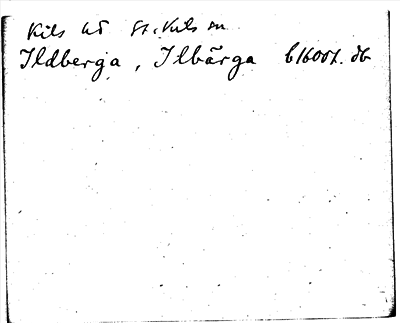 Kils hd St. Kils sn
Ildberga, Ilbärga b1600t. db